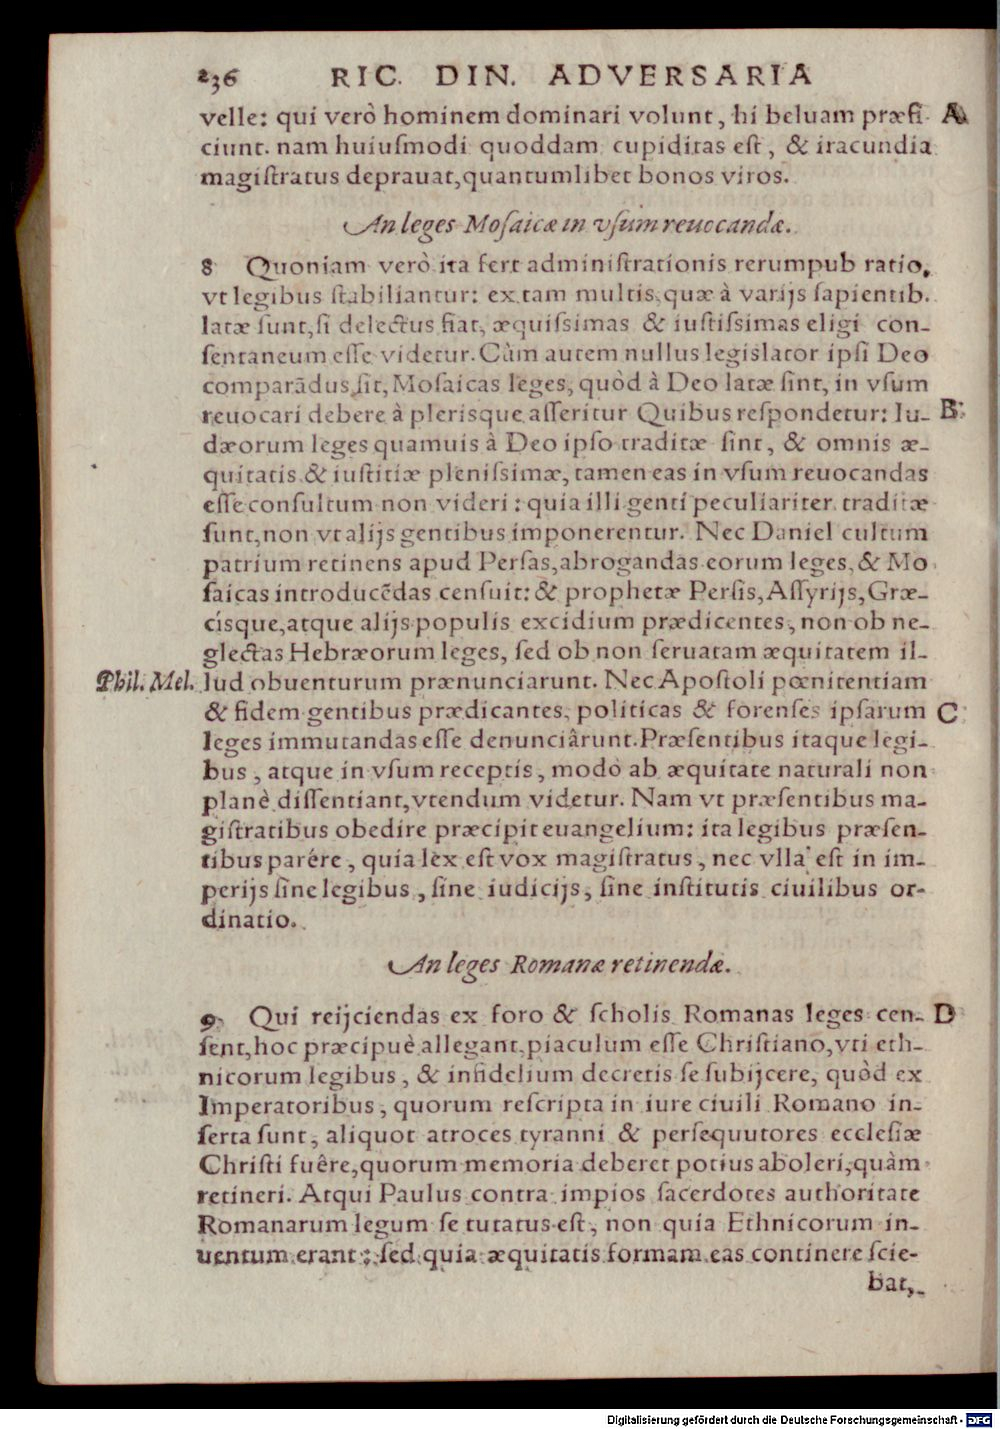 236 RIC. DIN. ADVERSARIA
velle: qui verò hominem dominari volunt, hi beluam præfi- A
ciunt. nam huiuſmodi quoddam cupiditas eſt, & iracundia
magiſtratus deprauat, quantumlibet bonos viros.
An leges Moſaicæ in vſum reuocandæ.
8 Quoniam verò ita fert adminiſtrationis rerumpub ratio,
vt legibus ſtabiliantur: ex tam multis, quæ à varijs ſapientib.
latæ ſunt, ſi delectus fiat, æquiſsimas & iuſtiſsimas eligi con-
ſentaneum eſſe videtur. Cùm autem nullus legislator ipſi Deo
comparãdus ſit, Moſaicas leges, quòd à Deo latæ ſint, in vſum
reuocari debere à pleriſque aſſeritur Quibus reſpondetur: Iu- B
dæorum leges quamuis à Deo ipſo traditæ ſint, & omnis æ-
quitatis & iuſtitiæ pleniſsimæ, tamen eas in vſum reuocandas
eſſe conſultum non videri: quia illi genti peculiariter traditæ
ſunt, non vt alijs gentibus imponerentur. Nec Daniel cultum
patrium retinens apud Perſas, abrogandas eorum leges, & Mo
ſaicas introducẽdas cenſuit: & prophetæ Perſis, Aſſyrijs, Græ-
ciſque, atque alijs populis excidium prædicentes, non ob ne-
glectas Hebræorum leges, ſed ob non ſeruatam æquitatem il-
Phil. Mel. lud obuenturum prænunciarunt. Nec Apoſtoli pœnitentiam
& fidem gentibus prædicantes, politicas & forenſes ipſarum C
leges immutandas eſſe denunciârunt. Præſentibus itaque legi-
bus, atque in vſum receptis, modò ab æquitate naturali non
planè diſſentiant, vtendum videtur. Nam vt præſentibus ma-
giſtratibus obedire præcipit euangelium: ita legibus præſen-
tibus parére, quia lex eſt vox magiſtratus, nec vlla eſt in im-
perijs ſine legibus, ſine iudicijs, ſine inſtitutis ciuilibus or-
dinatio.
An leges Romanæ retinendæ.
9 Qui reijciendas ex foro & ſcholis Romanas leges cen- D
ſent, hoc præcipuè allegant, piaculum eſſe Chriſtiano, vti eth-
nicorum legibus, & infidelium decretis ſe ſubijcere, quòd ex
Imperatoribus, quorum reſcripta in iure ciuili Romano in-
ſerta ſunt, aliquot atroces tyranni & perſequutores eccleſiæ
Chriſti fuêre, quorum memoria deberet potius aboleri, quàm
retineri. Atqui Paulus contra impios ſacerdotes authoritate
Romanarum legum ſe tutatus eſt, non quia Ethnicorum in-
uentum erant; ſed quia æquitatis formam eas continere ſcie-
bat,
Digitalisierung gefördert durch die Deutsche Forschungsgemeinschaft - DFG